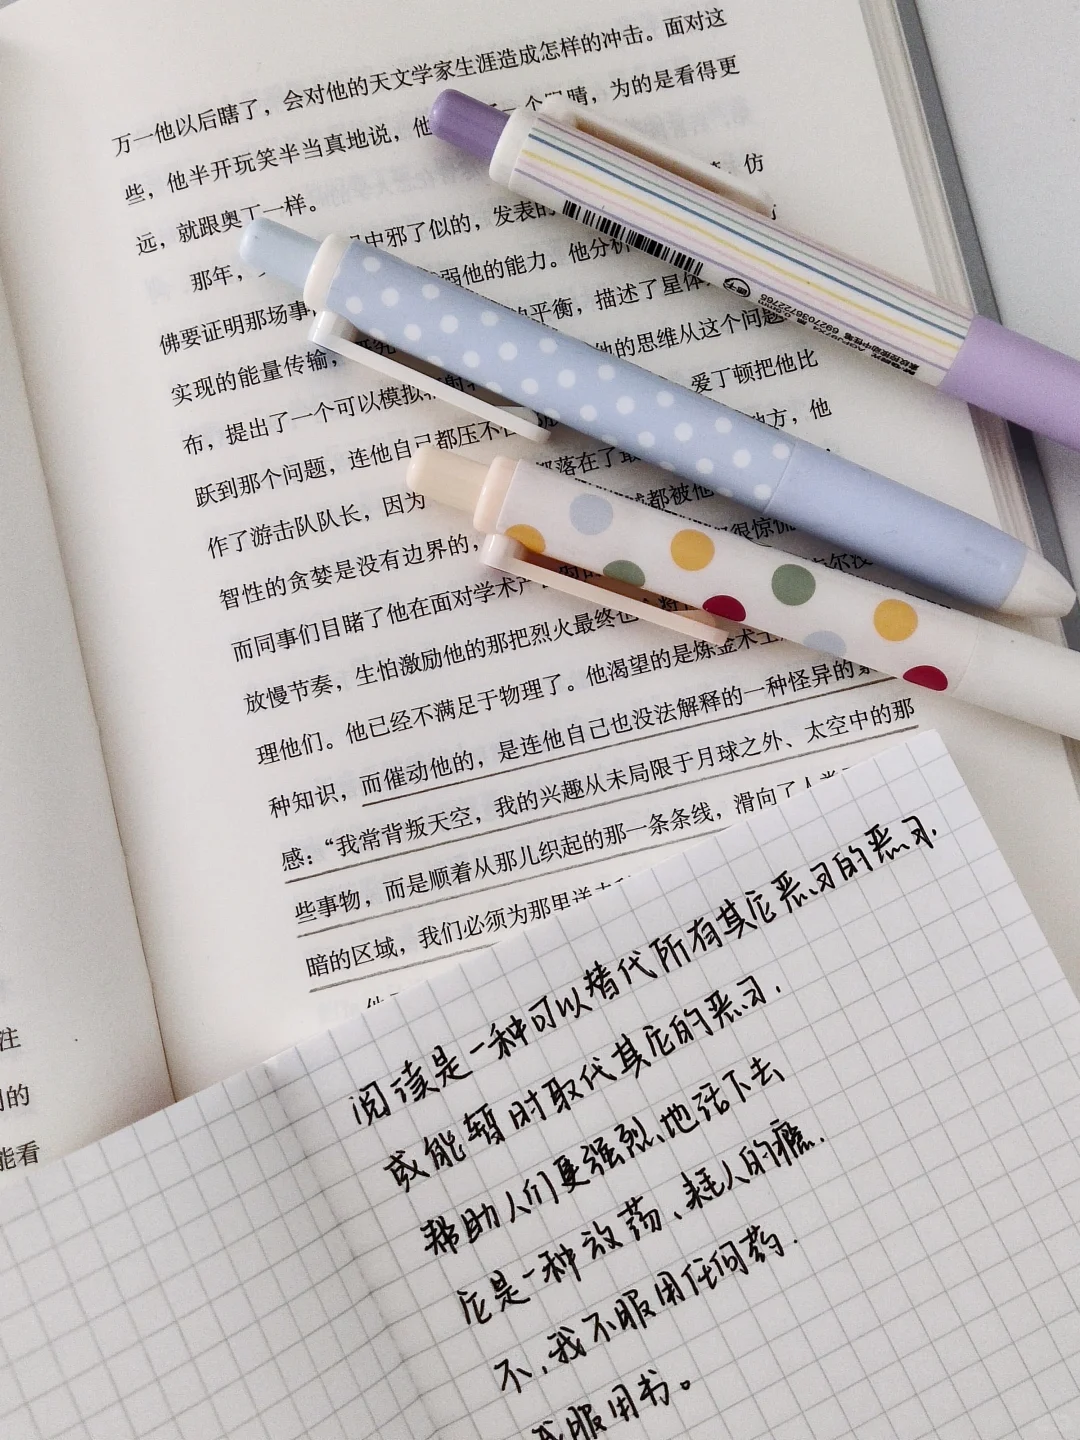 万一他以后瞎了，会对他的天文学家生涯造成怎样的冲击。面对这
些，他半开玩笑半当真地说，他 一个眼睛，为的是看得更
远，就跟奥丁一样。
那年， 中邪了似的，发表的 仿
佛要证明那场事 弱他的能力。他分析
实现的能量传输， 的平衡，描述了星体
布，提出了一个可以模拟 他的思维从这个问题
跃到那个问题，连他自己都压不 爱丁顿把他比
作了游击队队长，因为 都落在了 地方，他
智性的贪婪是没有边界的， 都被他
而同事们目睹了他在面对学术产 很惊慌
放慢节奏，生怕激励他的那把烈火最终也
理他们。他已经不满足于物理了。他渴望的是炼金术士
种知识，而催动他的，是连他自己也没法解释的一种怪异的
感：“我常背叛天空，我的兴趣从未局限于月球之外、太空中的那
些事物，而是顺着从那儿织起的那一条条线，滑向了人类
暗的区域，我们必须为那里送
注
的
能看
阅读是一种可以替代所有其它恶习的恶习.
或能暂时取代其它的恶习.
帮助人们更强烈地活下去
它是一种放荡、耗人的瘾.
不,我不服用任何药.
我服用书。